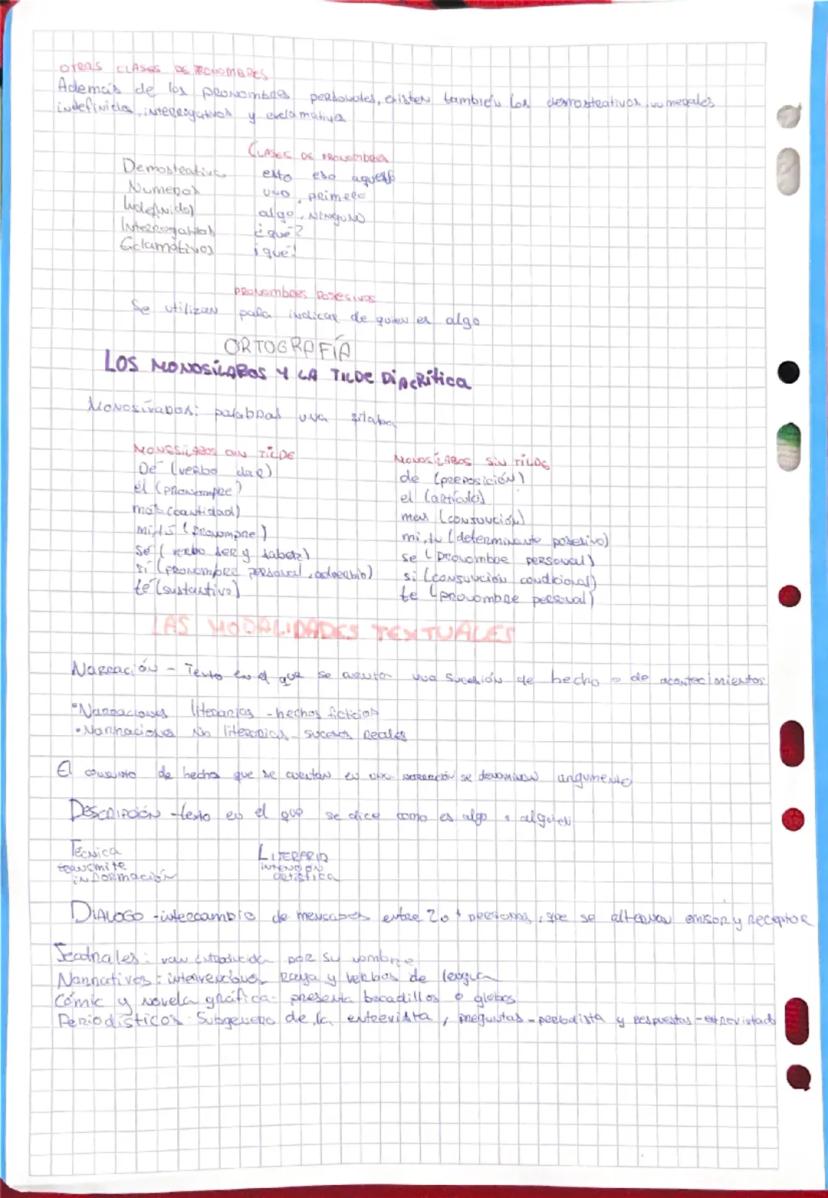 OTRAS CLASES DE PRONOMBRES
Además de los pronombres personales, existen también los demostrativos, numerales
indefinidos, interrogativos y exclamativa
CLASES DE PRONOMBRES
Demostrativo esto eso aquello
Numeral uno, primero
Indefinidol algo, NINGUNO
Interrogativos ¿qué?
Exclamativos ¡qué!
PRONOMBRES POSESIVOS
Se utilizan para indicar de quien es algo
ORTOGRAFÍA
LOS MONOSÍLABOS Y LA TILDE DIACRÍTICA
Monosílabos: palabras una sílaba
MONOSÍLABOS CON TILDE MONOSÍLABOS SIN TILDE
Dé (verbo dar) de (preposición)
él (pronombre) el (artículo)
más (cantidad) mas (conjunción)
mí, tú (pronombre) mi, tu (determinante posesivo)
sé (verbo ser y saber) se (pronombre personal)
sí (pronombre personal, adverbio) si (conjunción condicional)
té (sustantivo) te (pronombre personal)
LAS MODALIDADES TEXTUALES
Narración - Texto en el que se cuenta una sucesión de hecho o de acontecimientos
•Narraciones literarias - hechos ficticios
•Narraciones No literarias - sucesos reales
El conjunto de hechos que se cuentan en una narración se denominan argumento
DESCRIPCIÓN - texto en el que se dice como es algo o alguien
Técnica LITERARIO
transmite INTENCIÓN
información artística
DIALOGO - intercambio de mensajes entre 2 o + personas, que se alternan emisor y receptor
Teatrales: van introducida por su nombre
Narrativos: intervenciones raya y verbos de lengua
Cómic y novela gráfica: presenta bocadillos o globos
Periodísticos: Subgénero de la entrevista, preguntas - periodista y respuestas - entrevistado